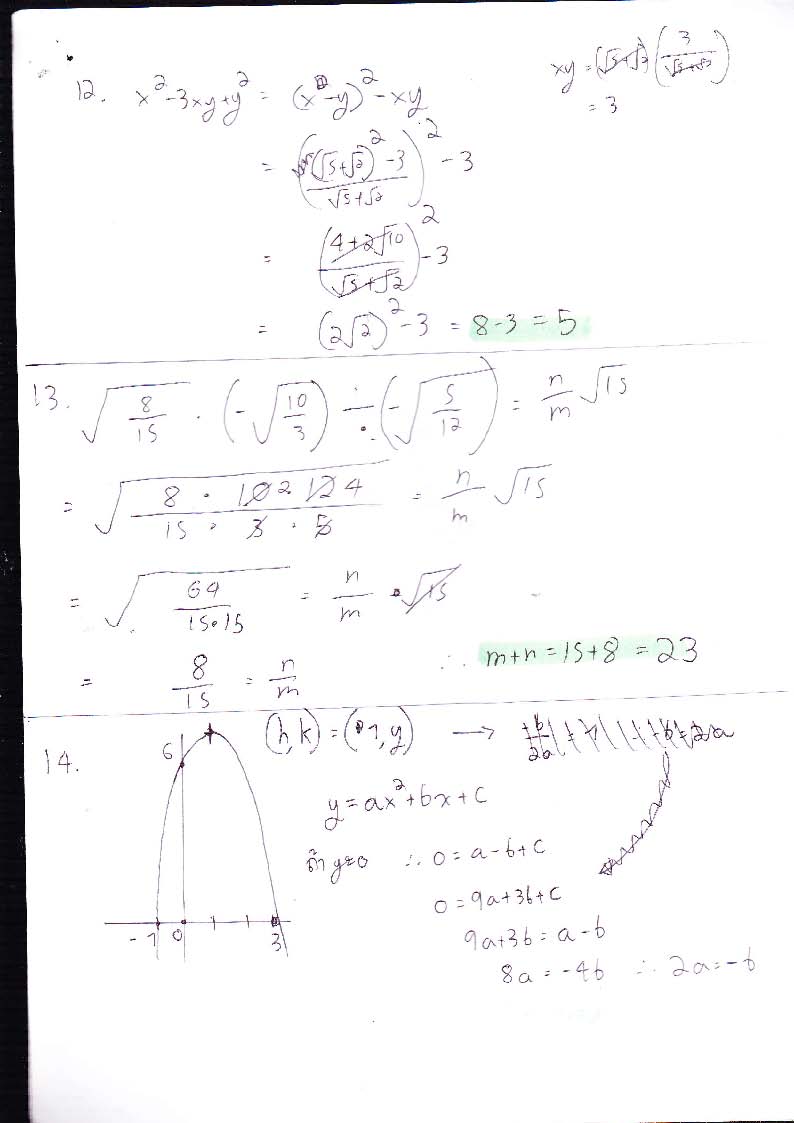 12. x²-3xy+y² = (x-y)²-xy
xy = (√5+√2)(3/(√5+√2))
= 3
= (((√5+√2)²-3)/(√5+√2))² - 3
= ((4+2√10)/(√5+√2))² - 3
= (2√2)² - 3 = 8-3 = 5
13. √(8/15) · (-√(10/3)) ÷ (-√(5/12)) = n/m √15
= √((8 · 10 2 12 4)/(15 · 3 · 5)) = n/m √15
= √(64/(15·15)) = n/m · √15
= 8/15 = n/m ∴ m+n = 15+8 = 23
14. (h,k) = (1,y) →
6
y = ax²+bx+c
ถ้า y=0 ∴ 0 = a-b+c
0 = 9a+3b+c
-1 0 3
9a+3b = a-b
8a = -4b ∴ 2a = -b